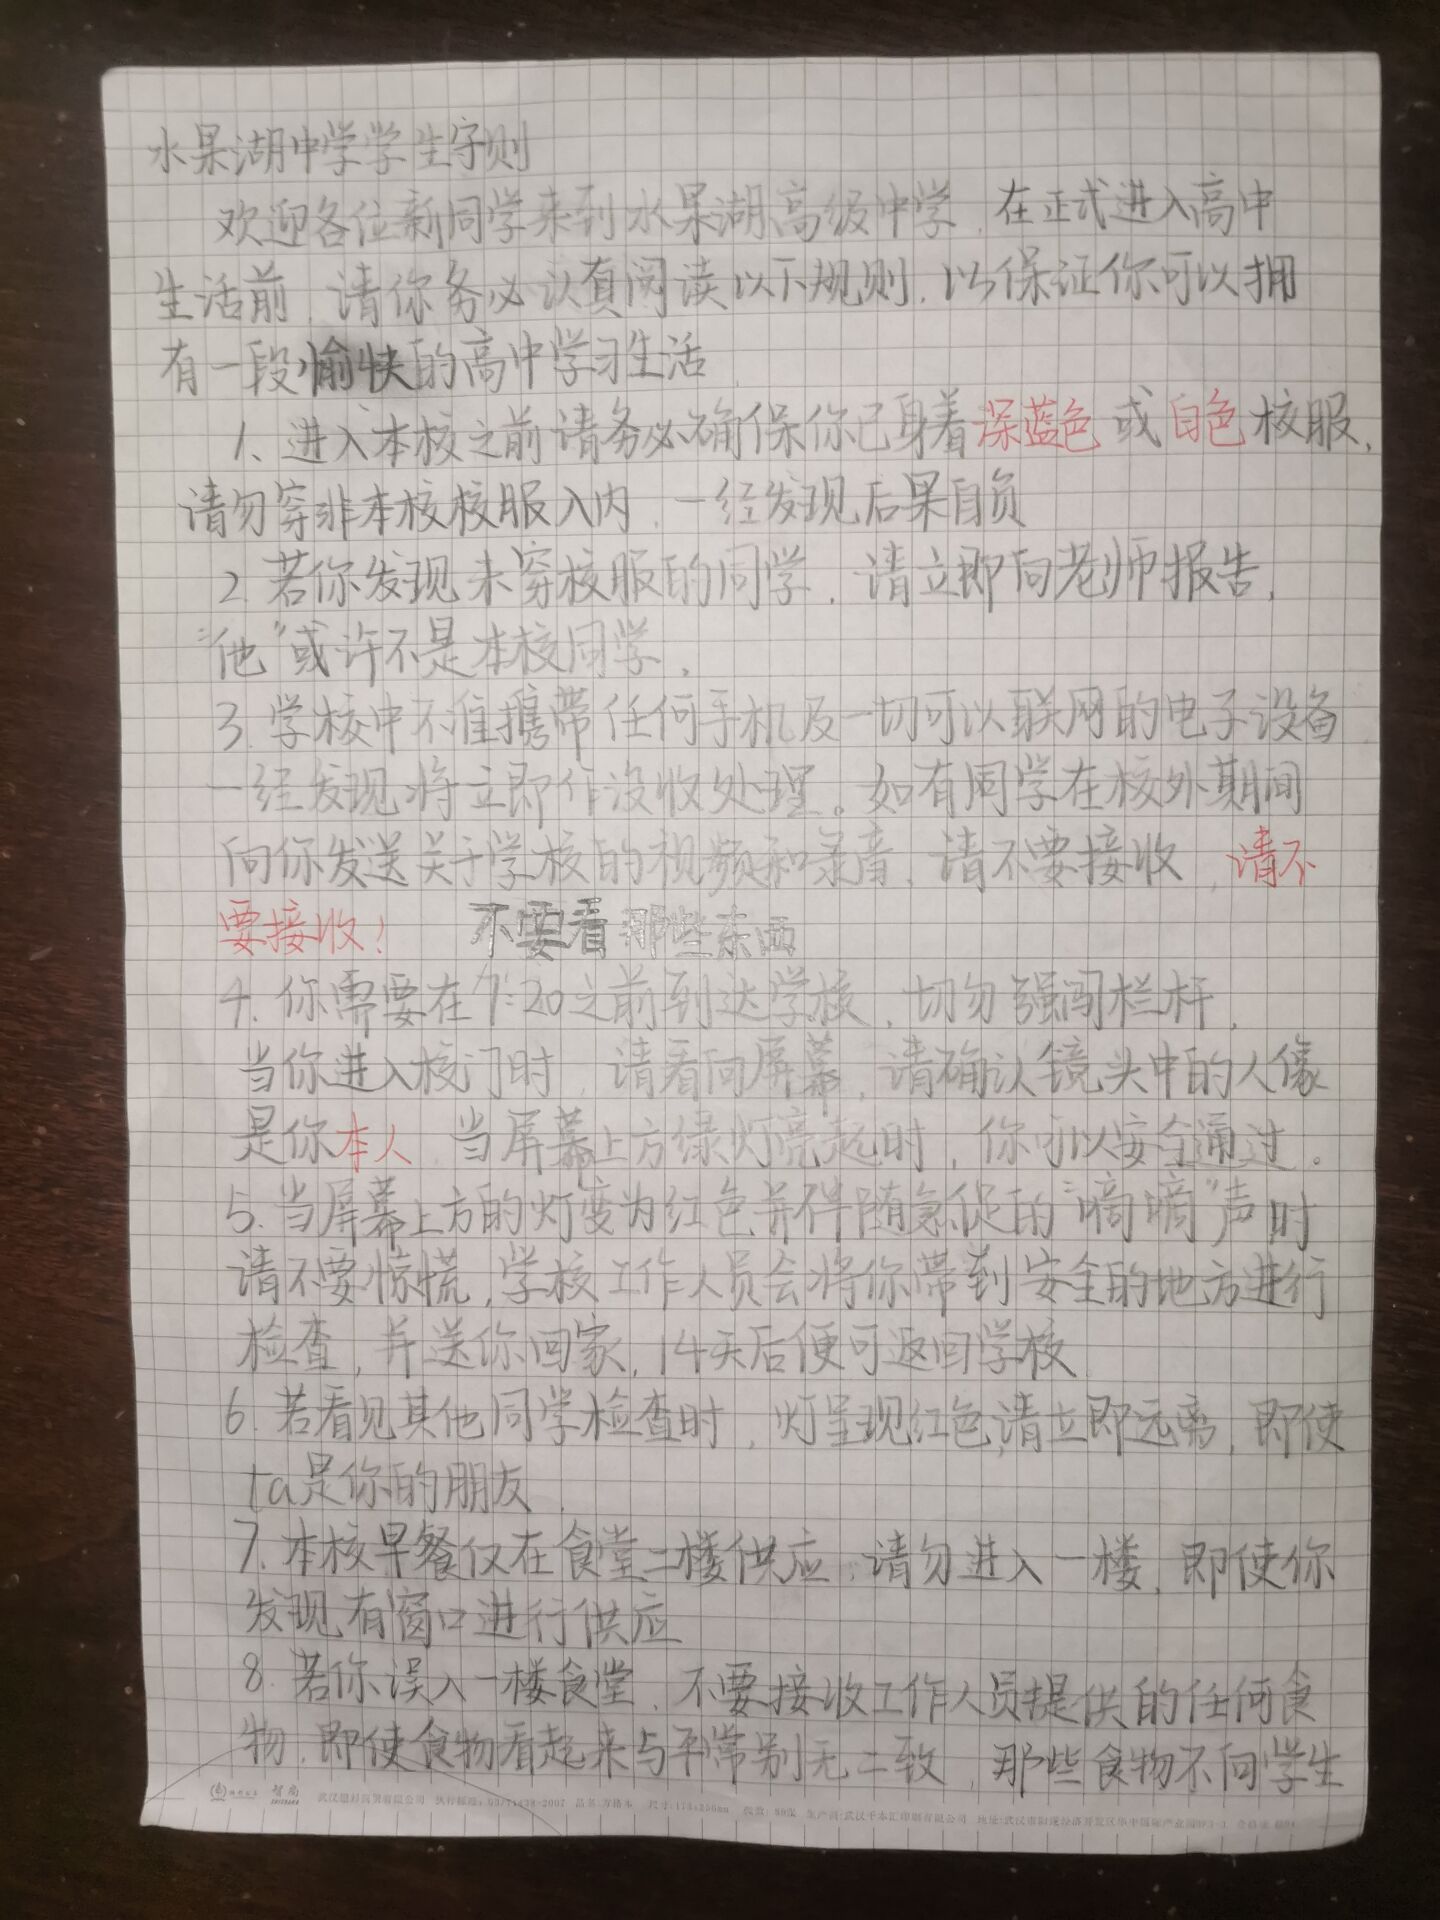 水果湖中学学生守则
欢迎各位新同学来到水果湖高级中学，在正式进入高中
生活前，请你务必认真阅读以下规则，以保证你可以拥
有一段愉快的高中学习生活．
1、进入本校之前请务必确保你已身着深蓝色或白色校服，
请勿穿非本校校服入内，一经发现后果自负
2.若你发现未穿校服的同学，请立即向老师报告，
“他”或许不是本校同学．
3.学校中不准携带任何手机及一切可以联网的电子设备
一经发现将立即作没收处理。如有同学在校外期间
向你发送关于学校的视频和录音，请不要接收，请不
要接收！ 不要看那些东西
4.你需要在7:20之前到达学校，切勿强闯栏杆，
当你进入校门时，请看向屏幕，请确认镜头中的人像
是你本人．当屏幕上方绿灯亮起时，你可以安全通过。
5.当屏幕上方的灯变为红色并伴随急促的“嘀嘀”声时
请不要惊慌，学校工作人员会将你带到安全的地方进行
检查，并送你回家，14天后便可返回学校．
6.若看见其他同学检查时，灯呈现红色，请立即远离，即使
ta是你的朋友．
7.本校早餐仅在食堂二楼供应，请勿进入一楼，即使你
发现有窗口进行供应
8.若你误入一楼食堂，不要接收工作人员提供的任何食
物，即使食物看起来与平常别无二致，那些食物不向学生
智尚
执行标准：QB/T1438-2007 品名：方格本 尺寸：178x250mm